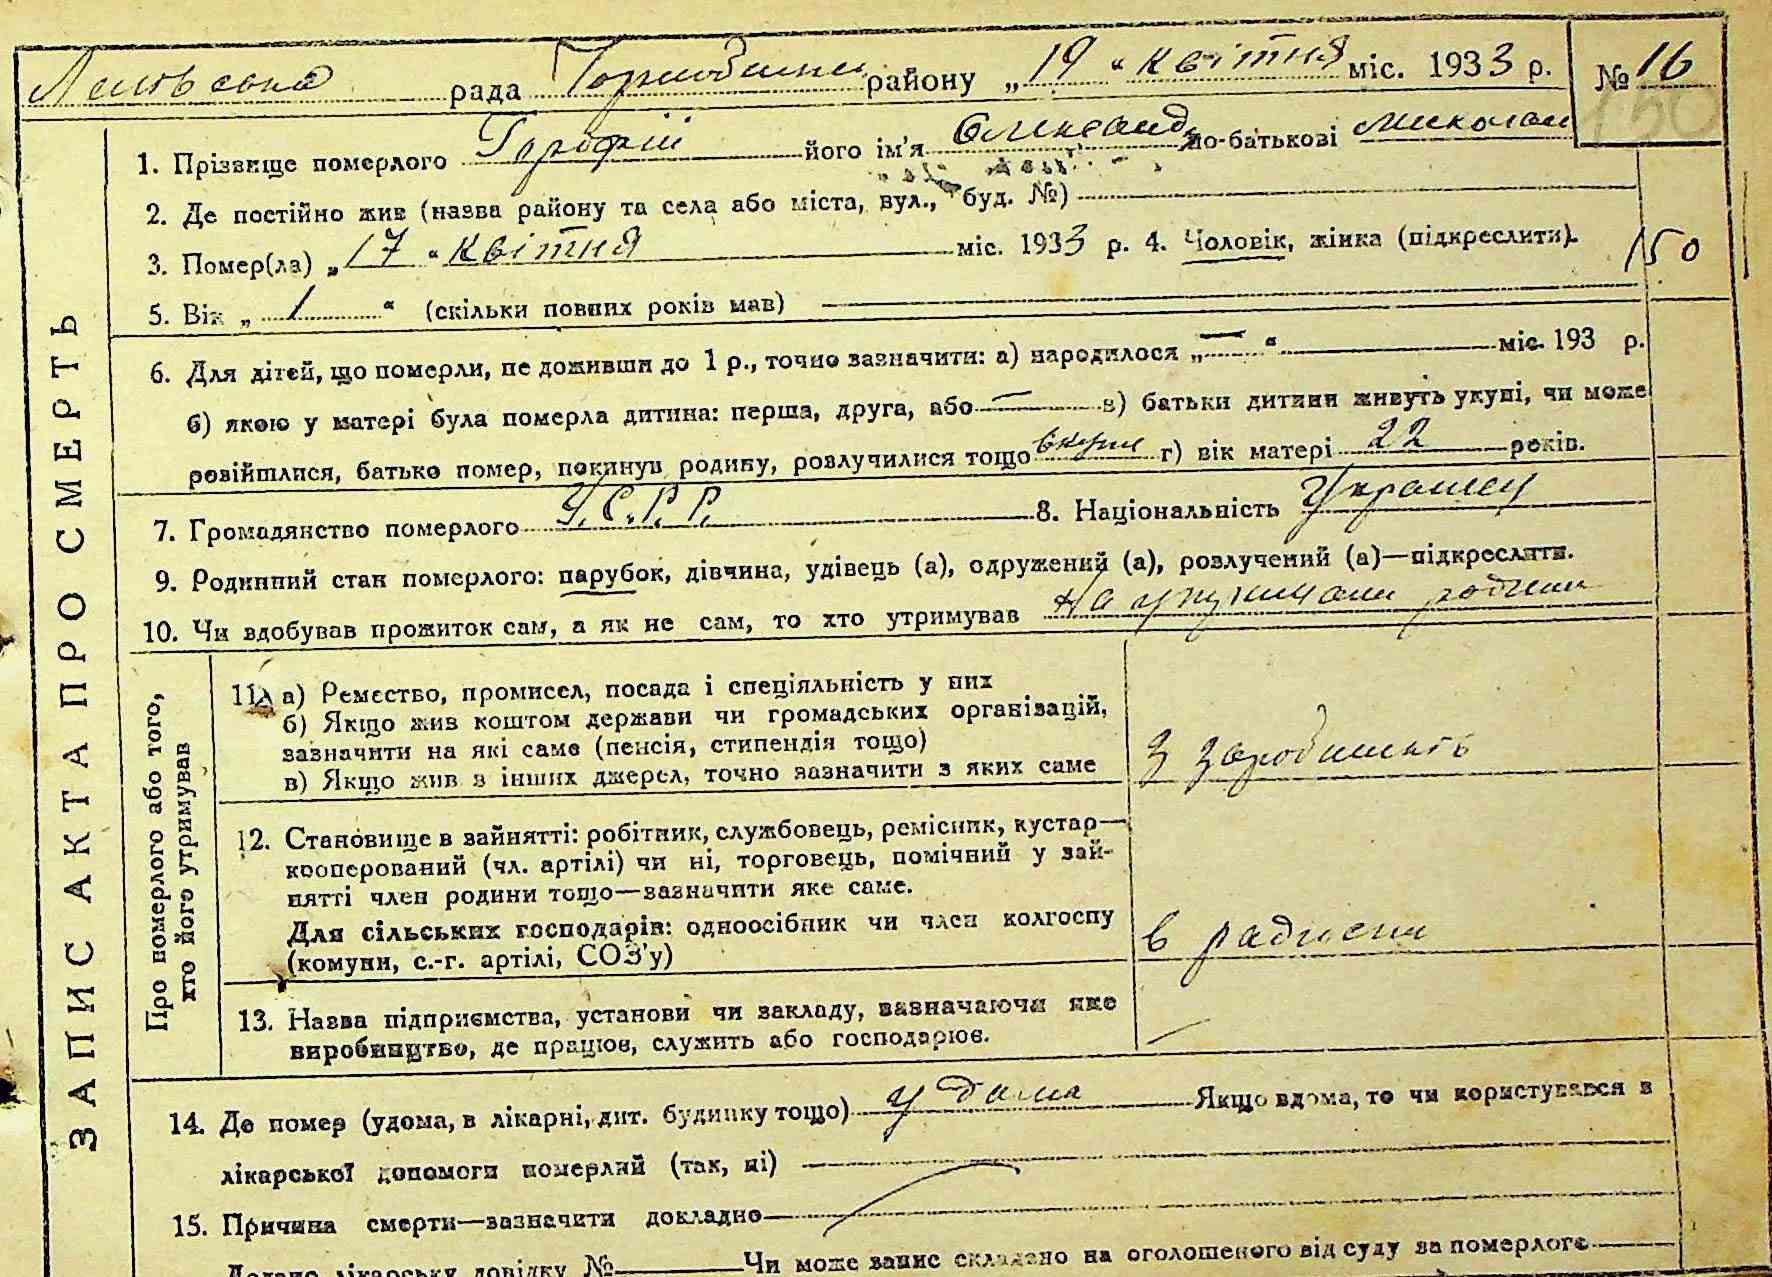 рада района „ 19 “ квітня міс. 1933 р. № 16
150
1. Прізвище померлого його ім'я по-батькові
2. Де постійно жив (назва району та села або міста, вул., буд. №)
3. Помер(ла) „ 17 “ квітня міс. 1933 р. 4. Чоловік, жінка (підкреслити).
150
5. Вік „ 1 “ (скільки повних років мав)
6. Для дітей, що померли, не доживши до 1 р., точно зазначити: а) народилося „ — “ міс. 193 р.
б) якою у матері була померла дитина: перша, друга, або — в) батьки дитини живуть укупі, чи може
розійшлися, батько помер, покинув родину, розлучилися тощо вкупі г) вік матері 22 років.
7. Громадянство померлого У.С.Р.Р. 8. Національність Украінец
9. Родинний стан померлого: парубок, дівчина, удівець (а), одружений (а), розлучений (а)—підкреслити.
10. Чи вдобував прожиток сам, а як не сам, то хто утримував на утриманні родини
ЗАПИС АКТА ПРО СМЕРТЬ
Про померлого або того,
хто його утримував
11. а) Ремество, промисел, посада і спеціяльність у них
б) Якщо жив коштом держави чи громадських організацій,
зазначити на які саме (пенсія, стипендія тощо)
в) Якщо жив з інших джерел, точно зазначити з яких саме
з
12. Становище в зайнятті: робітник, службовець, ремісник, кустар—
кооперований (чл. артілі) чи ні, торговець, помічний у зай-
нятті член родини тощо—зазначити яке саме.
Для сільських господарів: одноосібник чи член колгоспу
(комуни, с.-г. артілі, СОЗ'у)
в радгоспи
13. Назва підприємства, установи чи закладу, зазначаючи яке
виробництво, де працює, служить або господарює.
—
14. Де помер (удома, в лікарні, дит. будинку тощо) у дома Якщо вдома, то чи користувався з
лікарської допомоги померлий (так, ні)
15. Причина смерти—зазначити докладно
Додано лікарську довідку № Чи може запис складено на оголошеного від суду за померлого